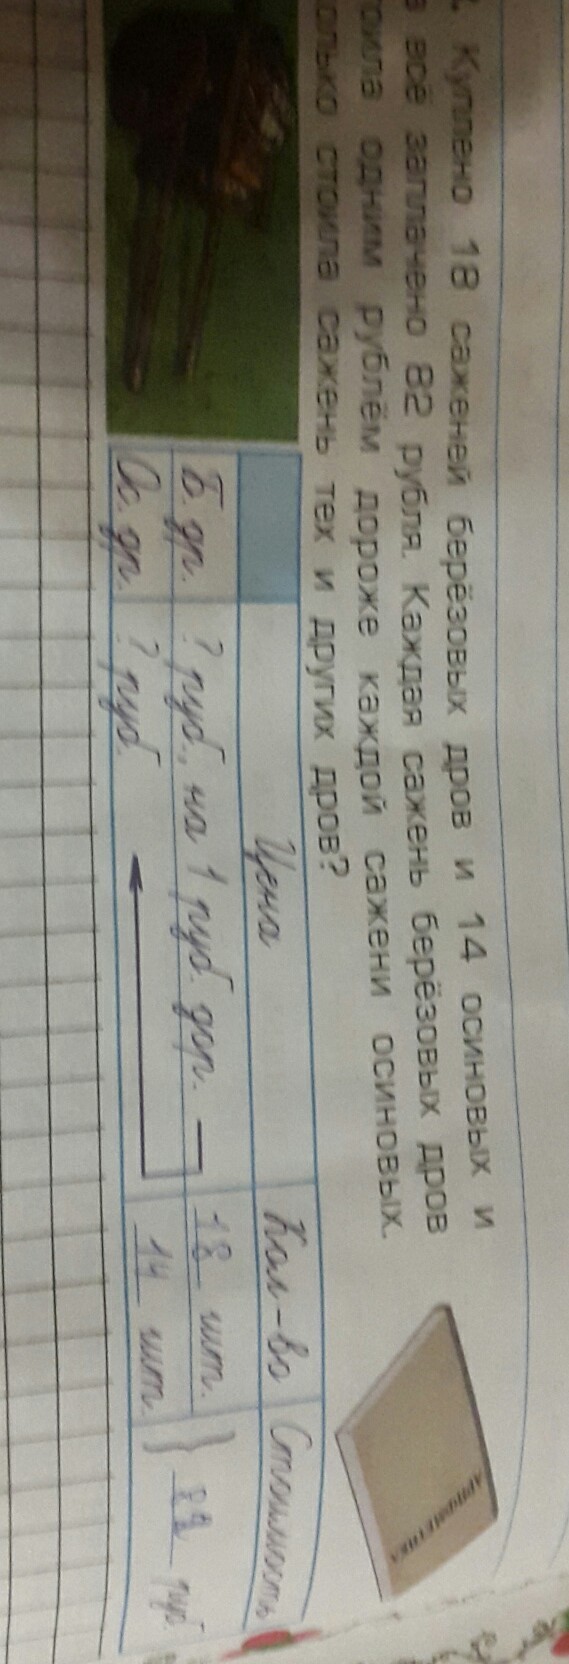 Куплено 18 саженей берёзовых дров и 14 осиновых и
всё заплачено 82 рубля. Каждая сажень берёзовых дров
одним рублём дороже каждой сажени осиновых.
стоила сажень тех и других дров?
АРИФМЕТИКА
Цена Кол-во Стоимость
Б. др. ? руб., на 1 руб. дор. 18 шт.
Ос. др. ? руб. 14 шт. } 82 руб.